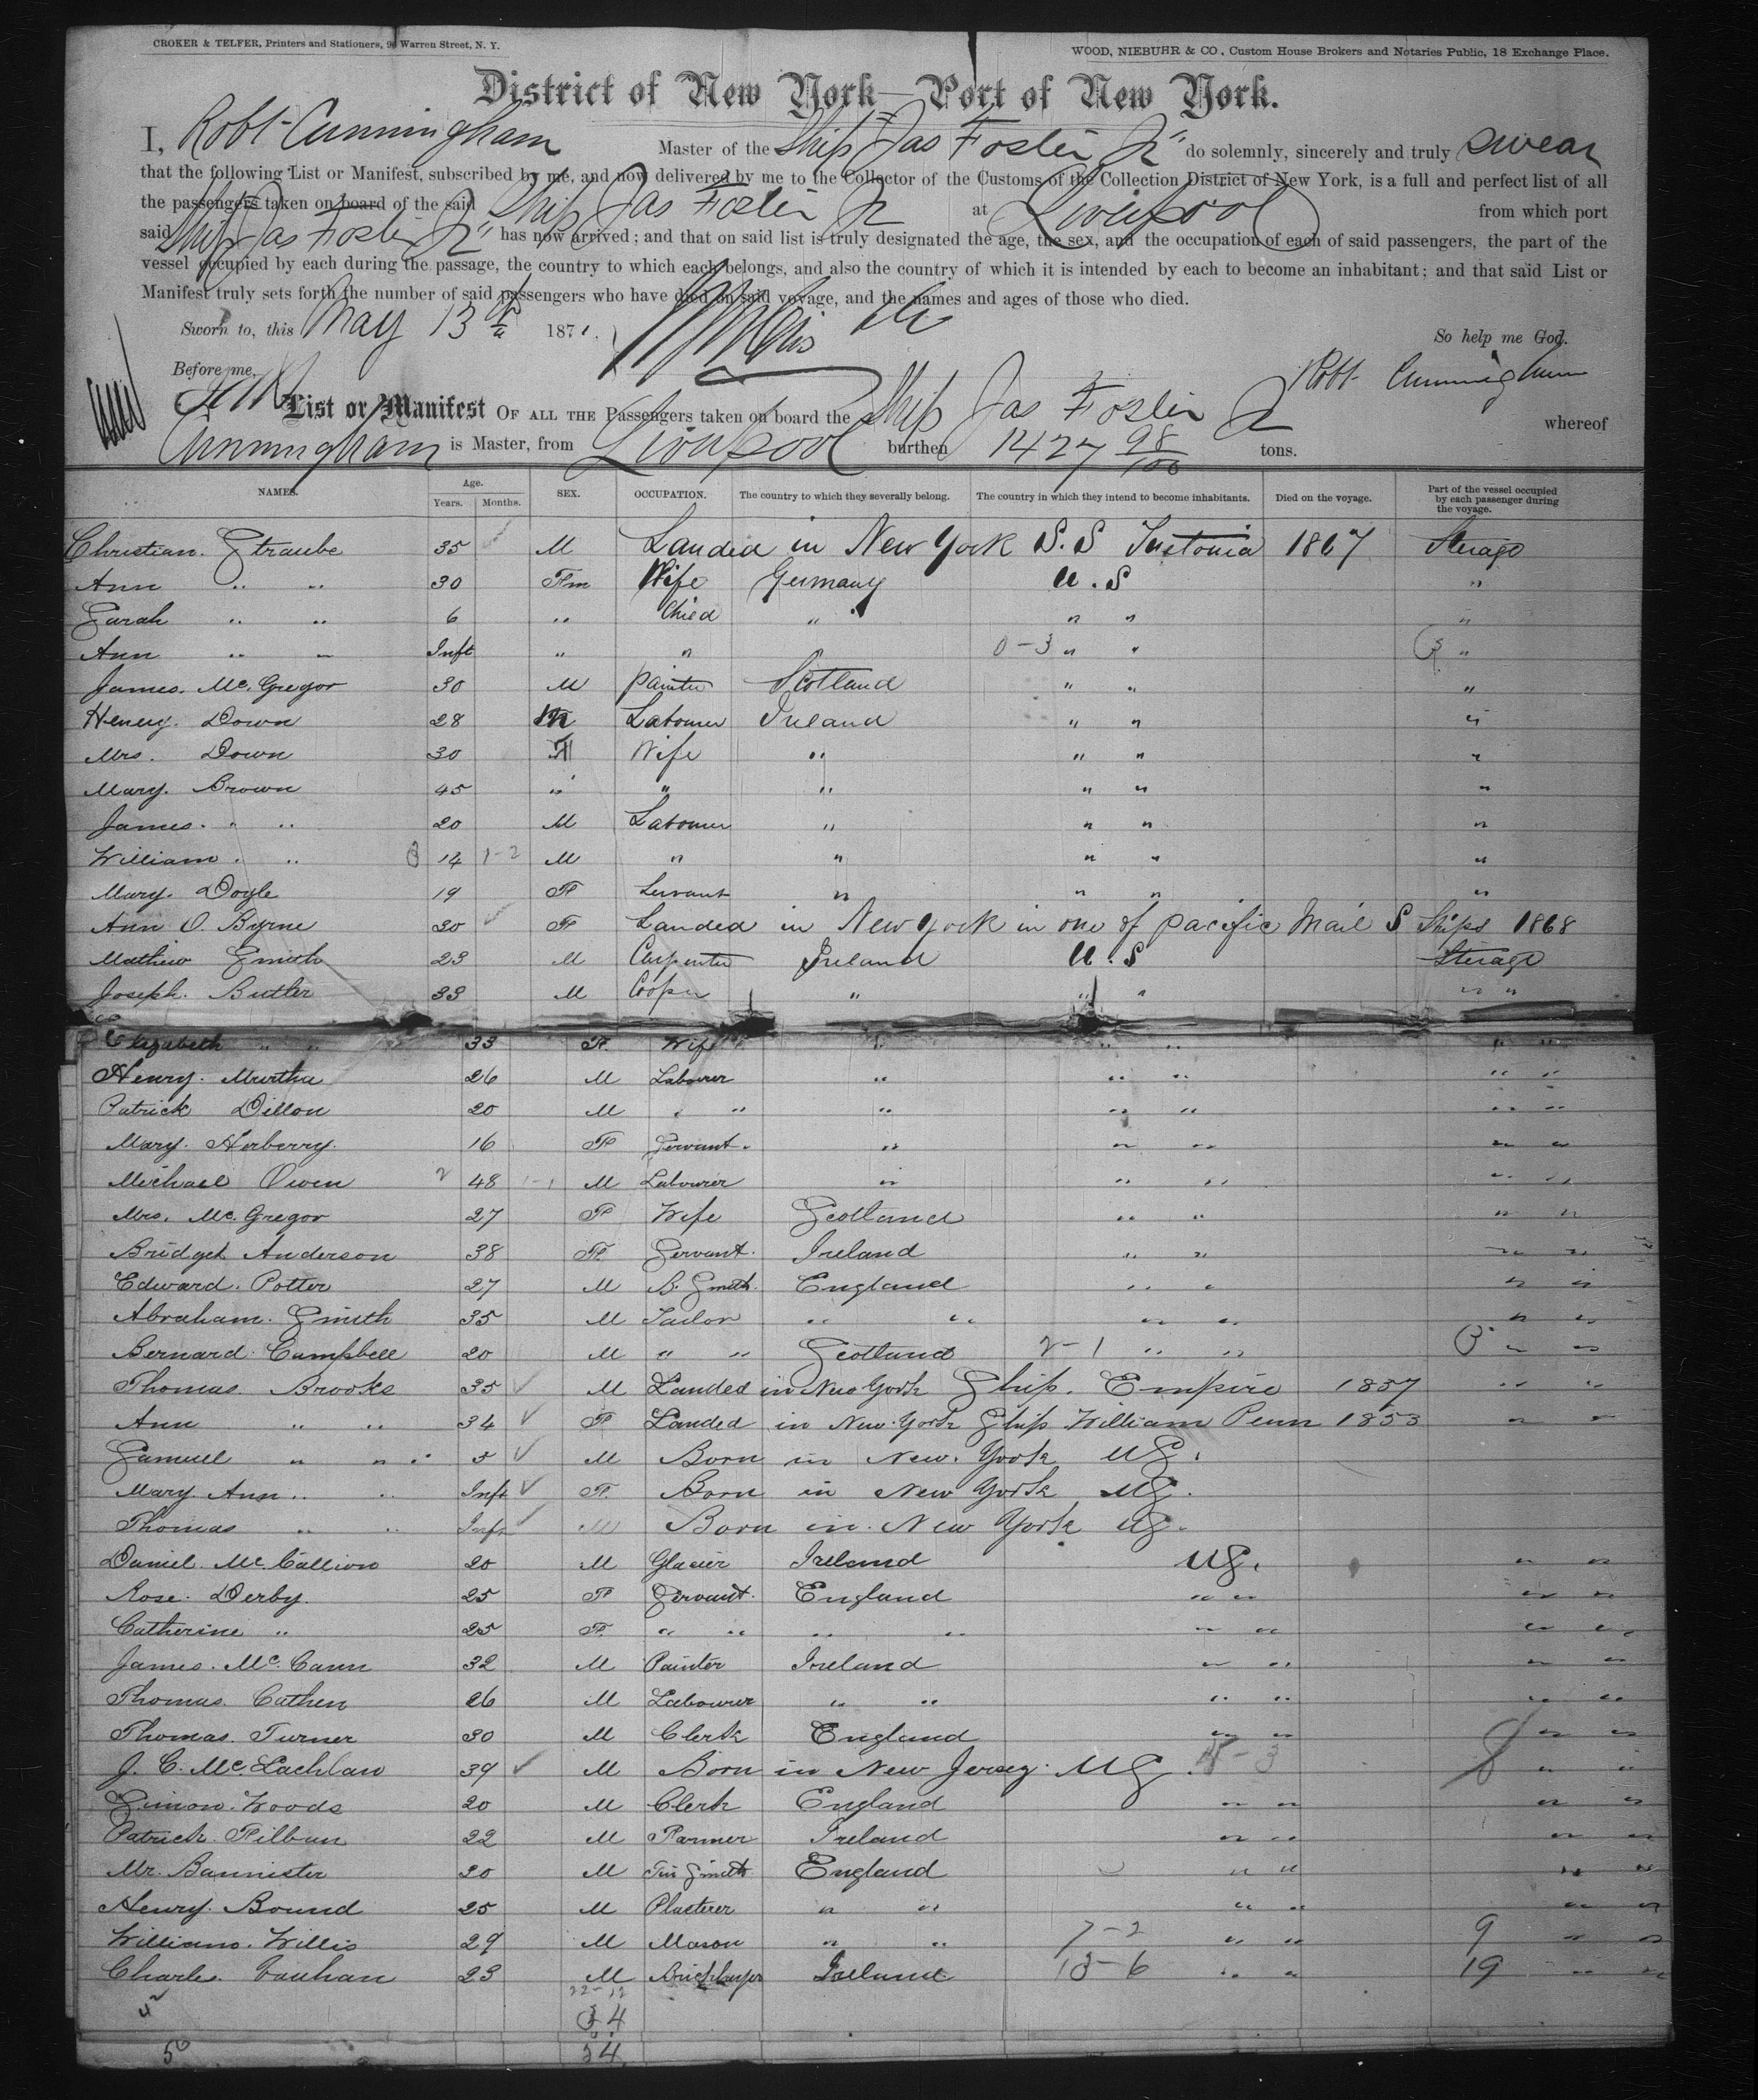 CROKER & TELFER, Printers and Stationers, 90 Warren Street, N. Y.
WOOD, NIEBUHR & CO, Custom House Brokers and Notaries Public, 18 Exchange Place.
District of New York—Port of New York.
I, Robt Cunningham Master of the Ship "Jas Foster Jr" do solemnly, sincerely and truly swear
that the following List or Manifest, subscribed by me, and now delivered by me to the Collector of the Customs of the Collection District of New York, is a full and perfect list of all
the passengers taken on board of the said Ship Jas Foster Jr at Liverpool from which port
said Ship "Jas Foster Jr" has now arrived; and that on said list is truly designated the age, the sex, and the occupation of each of said passengers, the part of the
vessel occupied by each during the passage, the country to which each belongs, and also the country of which it is intended by each to become an inhabitant; and that said List or
Manifest truly sets forth the number of said passengers who have died on said voyage, and the names and ages of those who died.
Sworn to, this May 13th 1871. So help me God.
Before me, Robt Cunningham
List or Manifest OF ALL THE Passengers taken on board the Ship Jas Foster Jr whereof
Cunningham is Master, from Liverpool burthen 1427 98/100 tons.
NAMES. Age. Years. Months. SEX. OCCUPATION. The country to which they severally belong. The country in which they intend to become inhabitants. Died on the voyage. Part of the vessel occupied by each passenger during the voyage.
Christian. Straube 35 M Landed in New York S.S Teutonia 1867 Sterage
Ann " " 30 Fm Wife Germany U.S "
Sarah " " 6 " Chied " " " "
Ann " " Inft " " " 0-3 " " "
James. Mc. Gregor 30 M painter Scotland " " "
Henery. Down 28 M Labourer Ireland " " "
Mrs. Down 30 F Wife " " " "
Mary. Brown 45 " " " " " "
James. " " 20 M Labourer " " " "
William. " 14 1-2 M " " " " "
Mary. Doyle 19 F Servant " " " "
Ann O. Byrne 20 F Landed in New York in one of pacific Mail S Ships 1868
Mathew Smith 23 M Carpenter Ireland U.S Sterage
Joseph. Butler 33 M Cooper " " " " "
Elizabeth " " 33 F. Wife " " " " "
Henry. Murtha 26 M Labourer " " " " "
Patrick Dillon 20 M " " " " " " "
Mary. Herberry. 16 F Servant. " " " " "
Michael Owen 2 48 1-1 M Labourer " " " " "
Mrs. Mc. Gregor 27 F Wife Scotland " " " "
Bridget Anderson 38 F Servant. Ireland " " " "
Edward. Potter 27 M B. Smith. England " " " "
Abraham. Smith 35 M Tailor " " " " " "
Bernard. Campbell 20 M " " Scotland 2-1 " " " "
Thomas. Brooks 35 ✓ M Landed in New York Ship. Empire 1857 " "
Ann " " 34 ✓ F Landed in New York Ship William Penn 1853 " "
Samuel " " 5 ✓ M Born in New. York US.
Mary Ann " " Inft ✓ F. Born in New York US.
Thomas " " Inft ✓ M Born in. New York US.
Daniel. Mc. Callion 20 M Glacier Ireland US. " "
Rose. Derby. 25 F Servant. England " " " "
Catherine " 25 F. " " " " " " " "
James. Mc. Cann 32 M Painter Ireland " " " "
Thomas. Cathen 26 M Labourer " " " " " "
Thomas. Turner 30 M Clerk England " " " "
J. C. Mc. Lachlan 39 ✓ M Born in New Jersey. US. 3 8 " "
Simon. Woods 20 M Clerk England " " " "
Patrick. Filbun 22 M Farmer Ireland " " " "
Mr. Bannister 20 M Tin Smith England " " " "
Henry. Bound 25 M Plasterer " " " " " "
William. Willis 29 M Mason " " 7-2 " " 9 " "
Charles. Vauhan 23 M Bricklayer Ireland 13-6 " " 19 " "
22-12
34
50 54